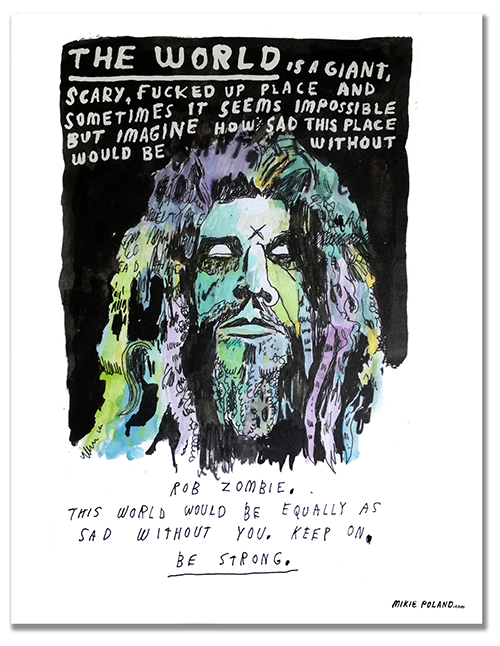 THE WORLD IS A GIANT,
SCARY, FUCKED UP PLACE AND
SOMETIMES IT SEEMS IMPOSSIBLE
BUT IMAGINE HOW SAD THIS PLACE
WOULD BE WITHOUT
ROB ZOMBIE.
THIS WORLD WOULD BE EQUALLY AS
SAD WITHOUT YOU. KEEP ON.
BE STRONG.
MIKIE POLAND.com